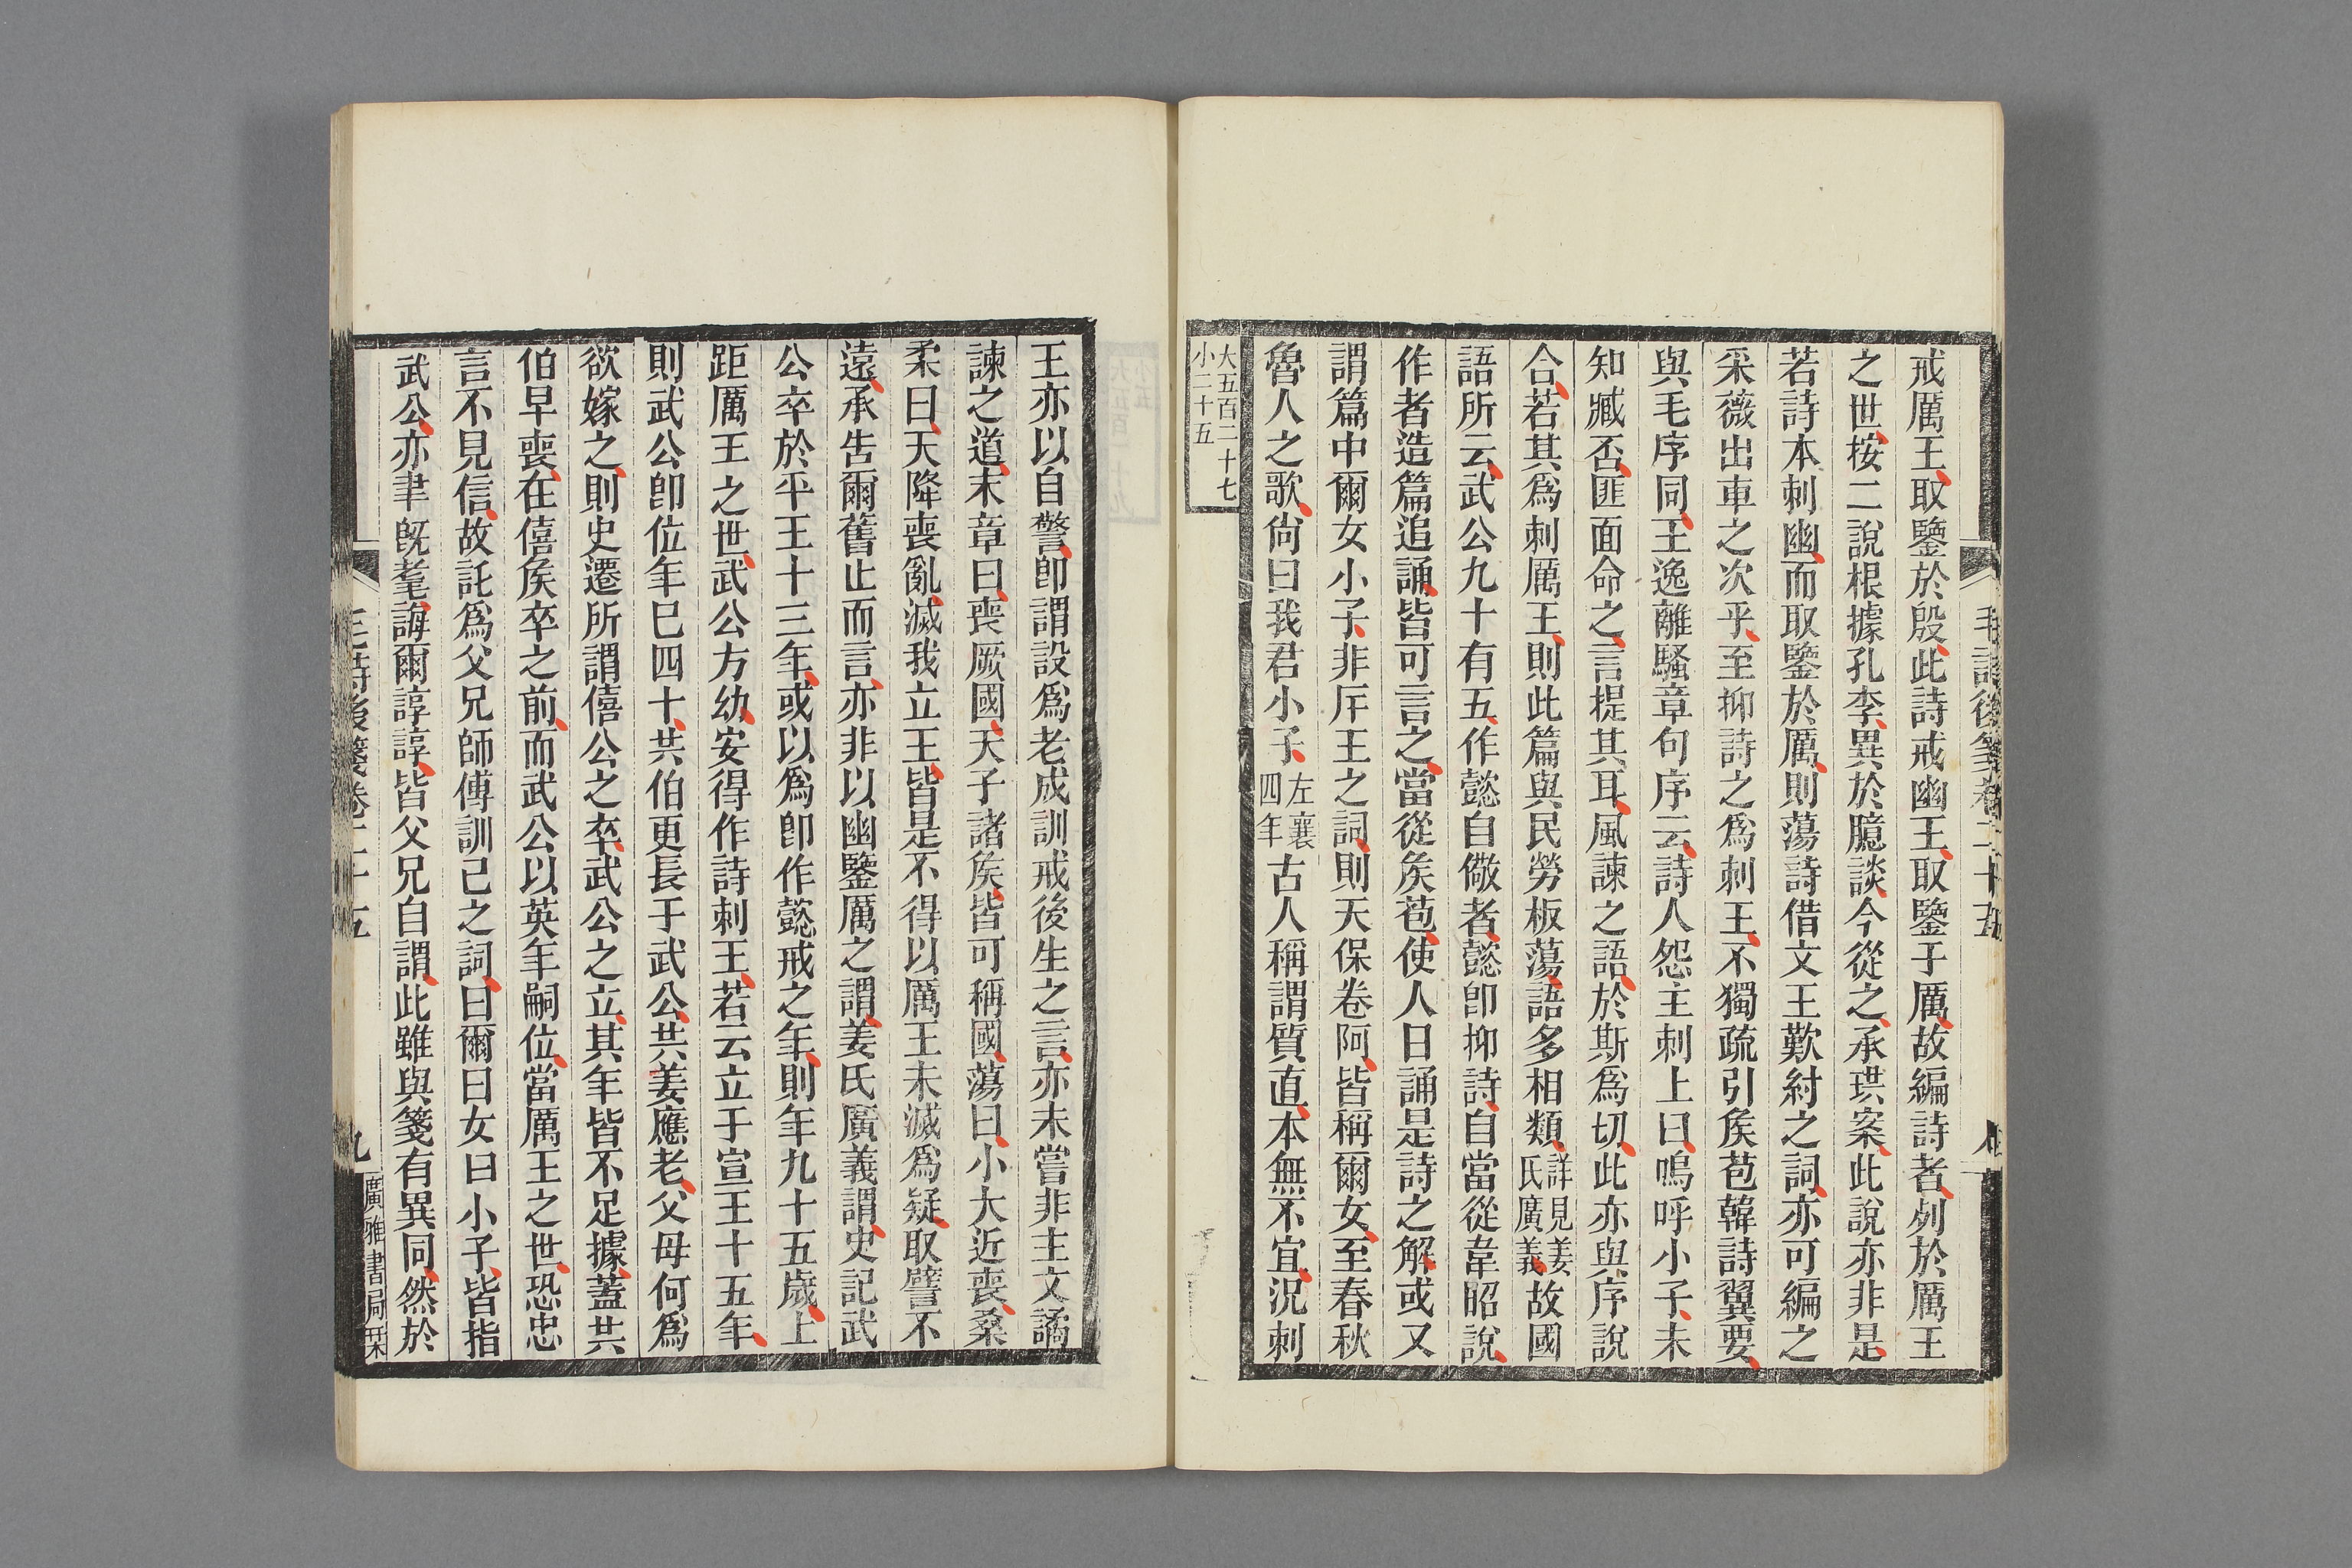 毛詩後箋卷二十五
戒厲王取鑒於殷此詩戒幽王取鑒于厲故編詩者列於厲王
之世按二說根據孔李異於臆談今從之承珙案此說亦非是
若詩本刺幽而取鑒於厲則蕩詩借文王歎紂之詞亦可編之
采薇出車之次乎至抑詩之爲刺王不獨疏引矦苞韓詩翼要
與毛序同王逸離騷章句序云詩人怨主刺上曰嗚呼小子未
知臧否匪面命之言提其耳風諫之語於斯爲切此亦與序說
合若其爲刺厲王則此篇與民勞板蕩語多相類詳見姜氏廣義故國
語所云武公九十有五作懿自儆者懿卽抑詩自當從韋昭說
作者造篇追誦皆可言之當從矦苞使人日誦是詩之解或又
謂篇中爾女小子非斥王之詞則天保卷阿皆稱爾女至春秋
魯人之歌尙曰我君小子左襄四年古人稱謂質直本無不宜況刺
大五百二十七
小二十五
王亦以自警卽謂設爲老成訓戒後生之言亦未嘗非主文譎
諫之道末章曰喪厥國天子諸矦皆可稱國蕩曰小大近喪桑
柔曰天降喪亂滅我立王皆是不得以厲王未滅爲疑取譬不
遠承告爾舊止而言亦非以幽鑒厲之謂姜氏廣義謂史記武
公卒於平王十三年或以爲卽作懿戒之年則年九十五歲上
距厲王之世武公方幼安得作詩刺王若云立于宣王十五年
則武公卽位年巳四十共伯更長于武公共姜應老父母何爲
欲嫁之則史遷所謂僖公之卒武公之立其年皆不足據蓋共
伯早喪在僖矦卒之前而武公以英年嗣位當厲王之世恐忠
言不見信故託爲父兄師傅訓己之詞曰爾曰女曰小子皆指
武公亦聿旣耄誨爾諄諄皆父兄自謂此雖與箋有異同然於
毛詩後箋卷二十五
九
廣雅書局栞